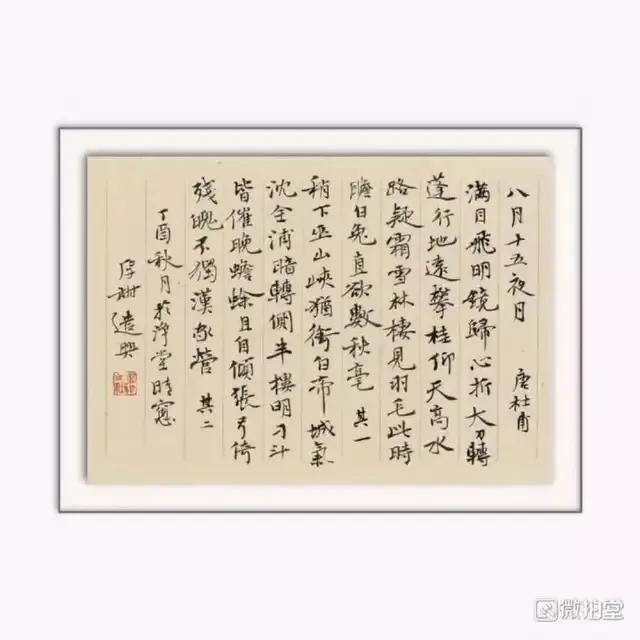 八月十五夜月 唐杜甫
滿目飛明鏡歸心折大刀轉
蓬行地遠攀桂仰天高水
路疑霜雪林棲見羽毛此時
瞻白兔直欲數秋毫 其一
稍下巫山峽猶銜白帝城氣
沈全浦暗轉側半樓明刁斗
皆催曉蟾蜍且自傾張弓倚
殘魄不獨漢家營 其二
丁酉秋月於淨堂晴窓
微拍堂